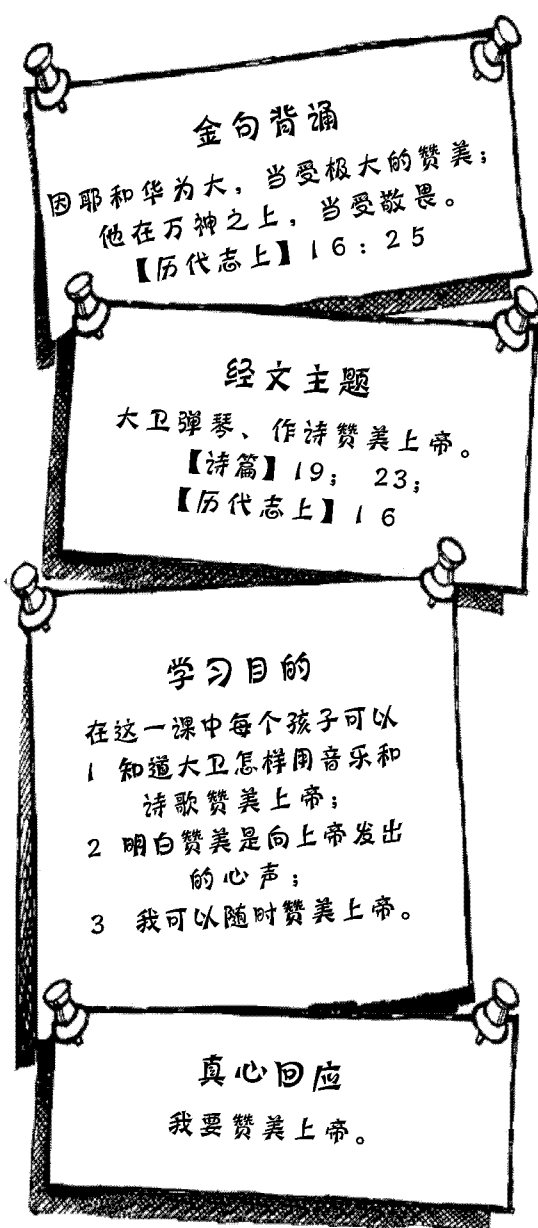 金句背诵
因耶和华为大，当受极大的赞美；
他在万神之上，当受敬畏。
【历代志上】16：25
经文主题
大卫弹琴、作诗赞美上帝。
【诗篇】19； 23；
【历代志上】16
学习目的
在这一课中每个孩子可以
1 知道大卫怎样用音乐和
诗歌赞美上帝；
2 明白赞美是向上帝发出
的心声；
3 我可以随时赞美上帝。
真心回应
我要赞美上帝。